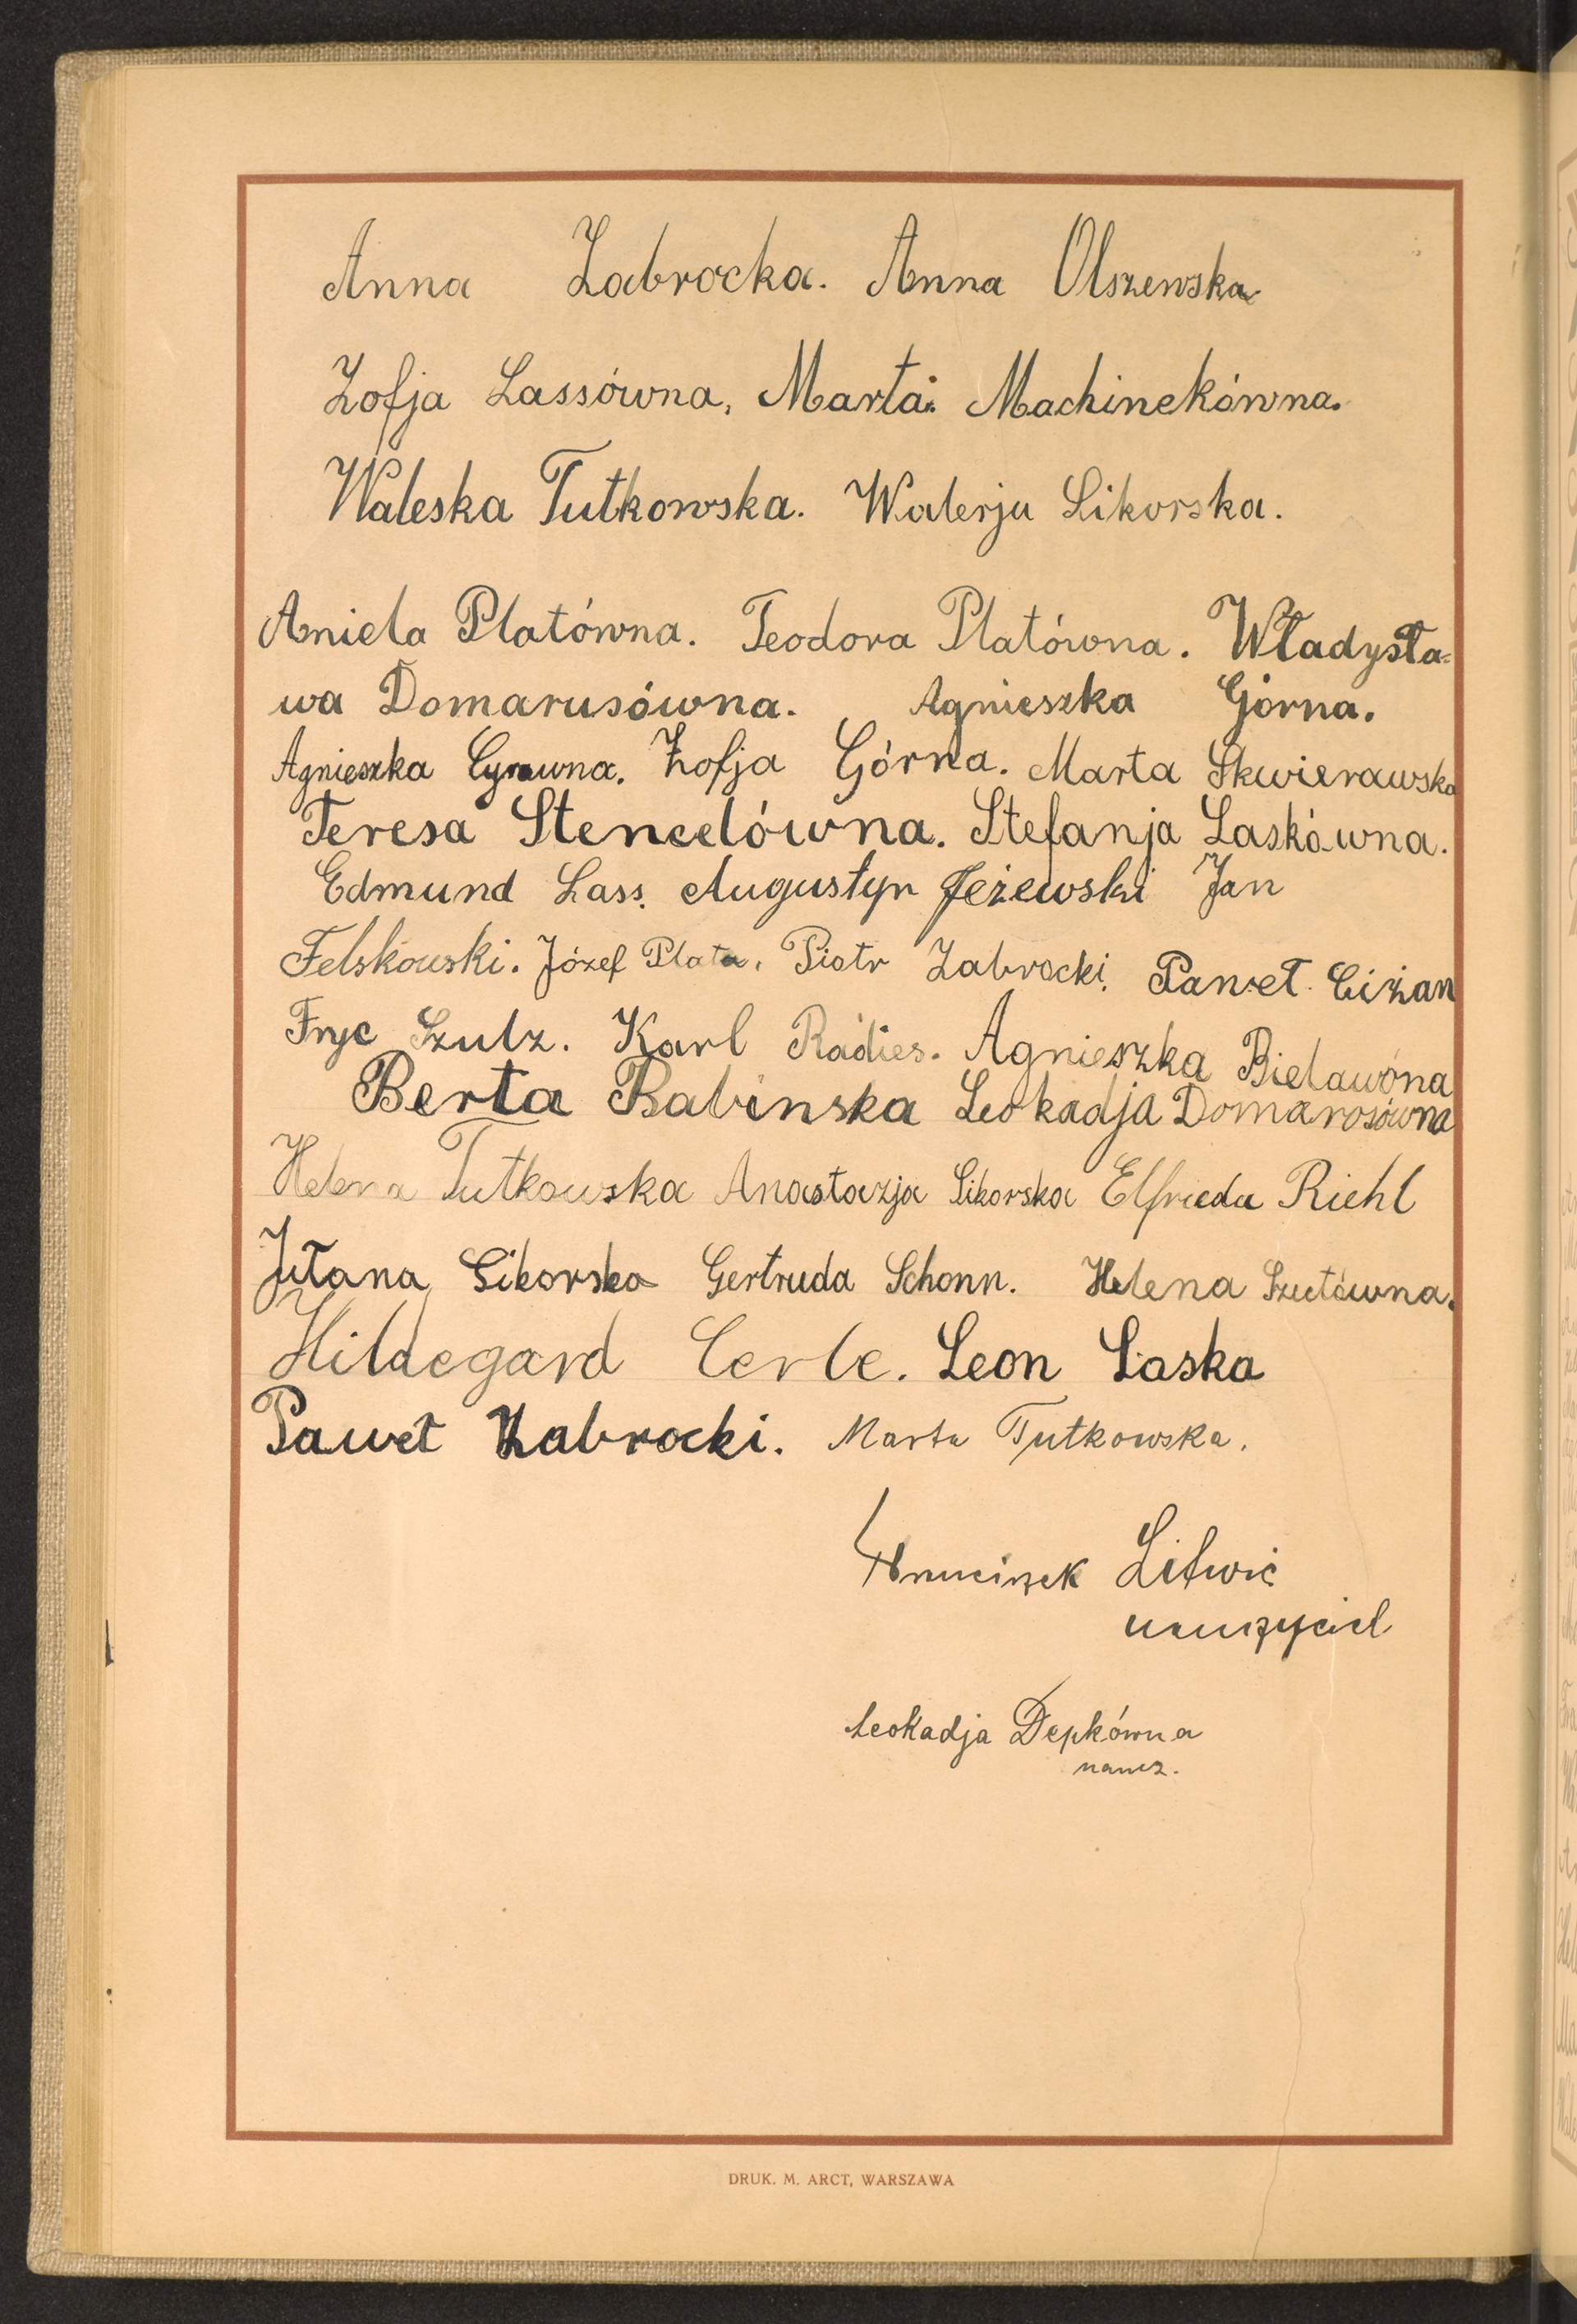 Anna Zabrocka. Anna Olszewska
Zofja Lassówna, Marta. Machinekówna.
Waleska Tutkowska. Walerja Sikorska.
Aniela Platówna. Teodora Platówna. Władysła-
wa Domarusówna. Agnieszka Górna.
Agnieszka Zofja Górna. Marta Skwierawska
Teresa Stencelówna. Stefanja Laskówna.
Edmund Lass. Augustyn Jeżewski Jan
Felskowski. Józef Plata, Piotr Zabrocki. Paweł Ciżan
Fryc Szulz. Karl Radies. Agnieszka Bielawóna
Berta Babinska Leokadja Domarosówna
Helena Tutkowska Anastazja Sikorska Elfrieda Riehl
Sikorska Gertruda Schonn. Helena
Hildegard Cerle. Leon Laska
Paweł Zabrocki. Marta Tutkowska.
Litwic
nauczyciel
Leokadja Depkówna
naucz.
DRUK. M. ARCT, WARSZAWA